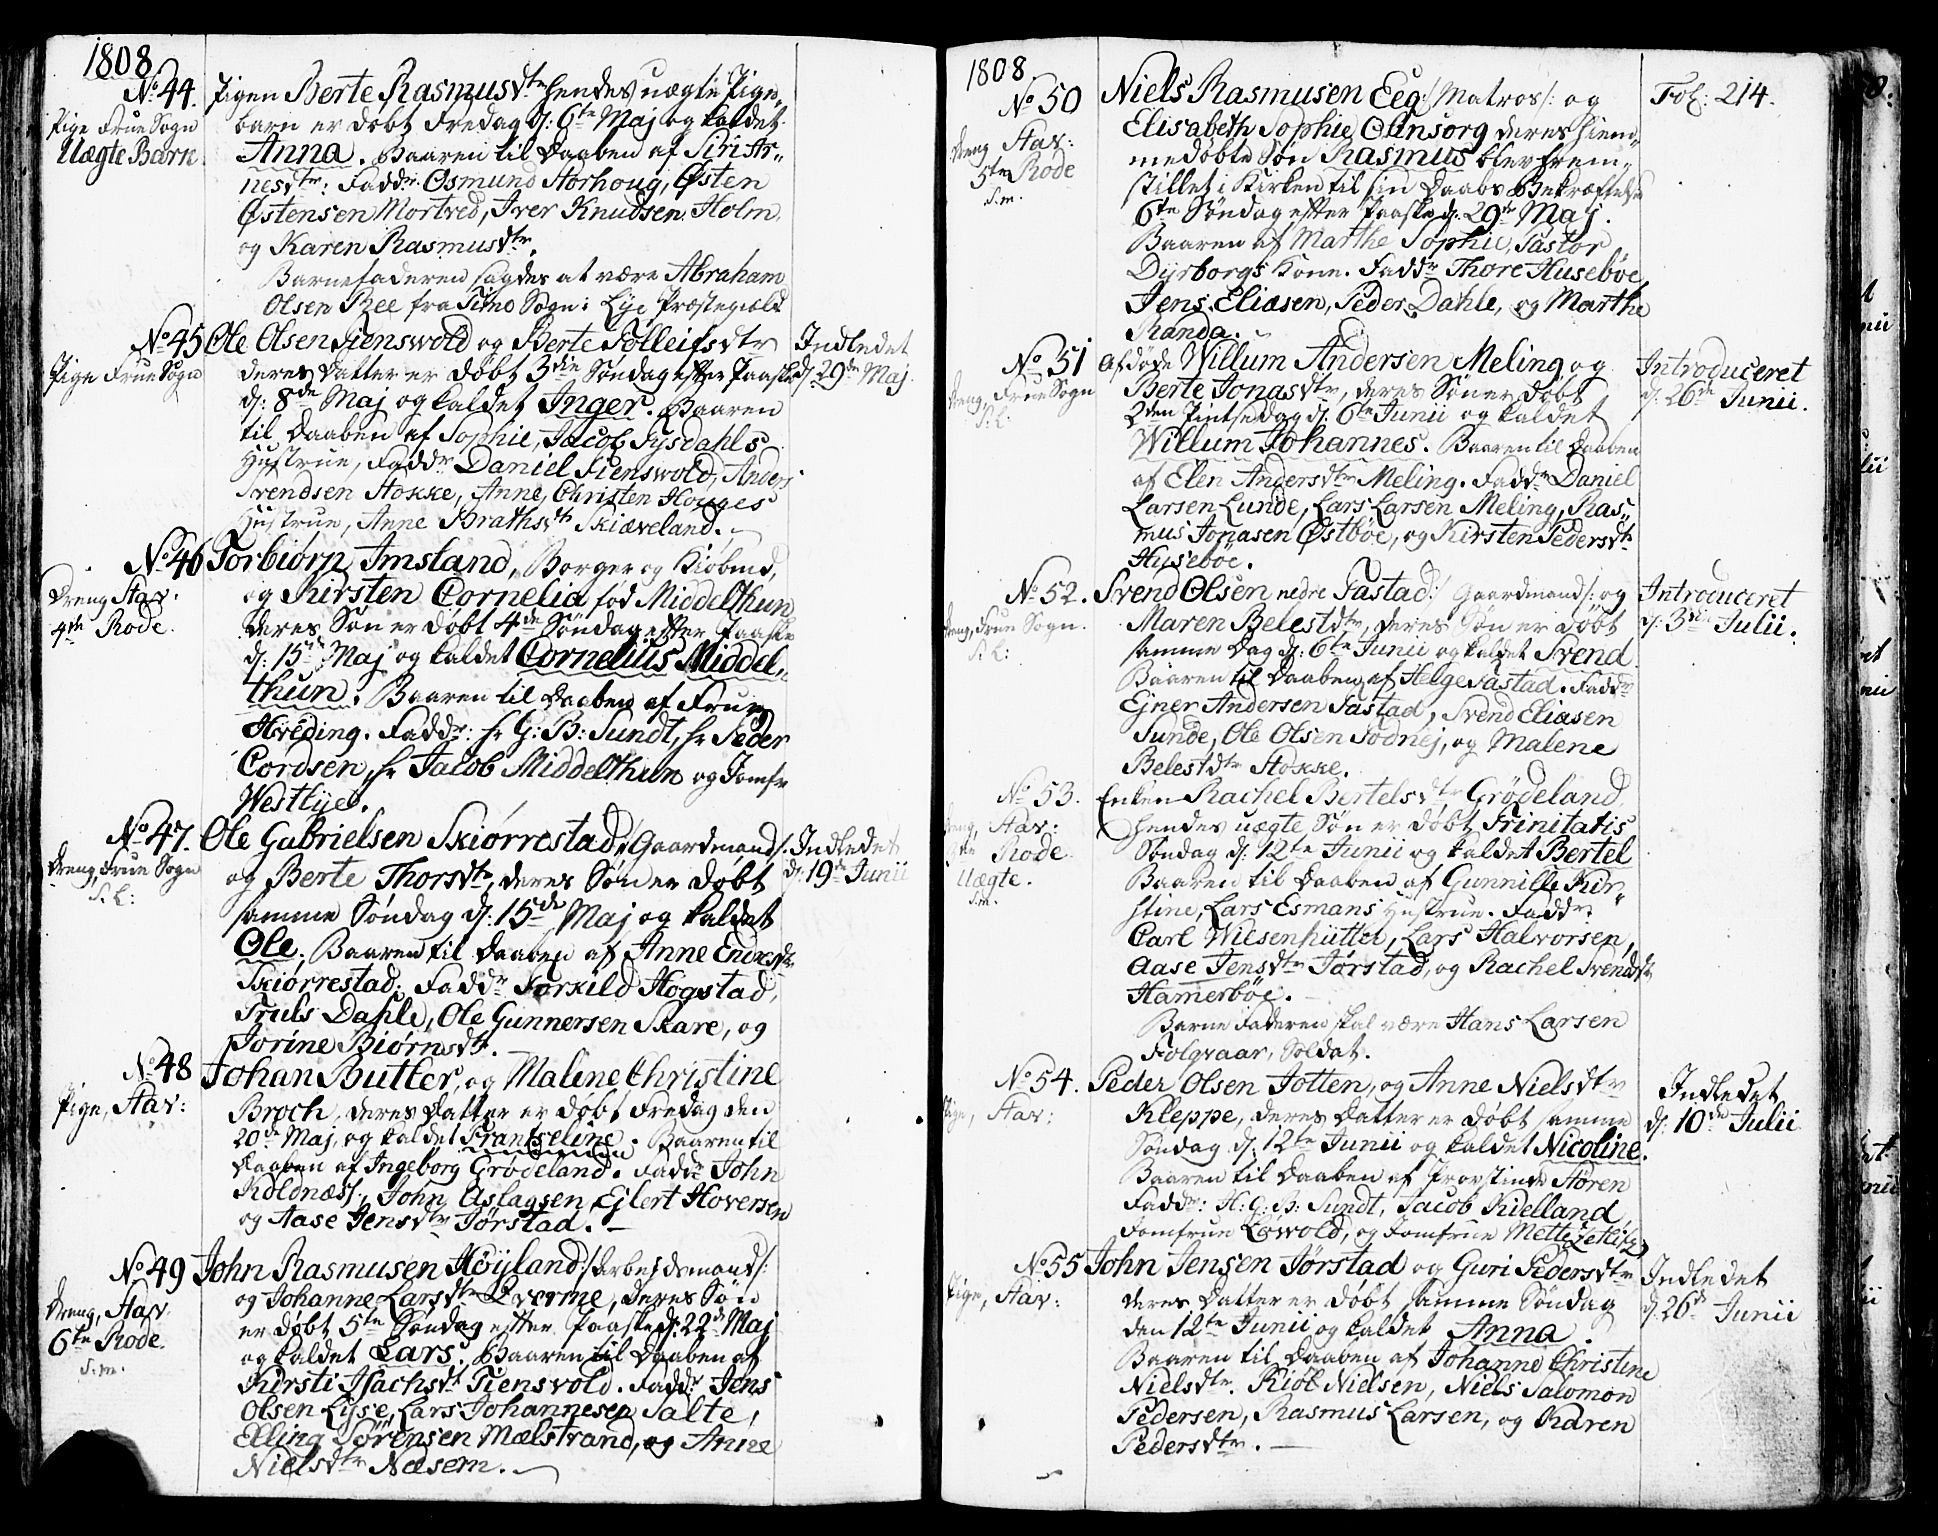 1808
No 44. Pigen Berte Rasmusdtr hendes uægte Pige-
Pige Frue Sogn
Uægte Barn
barn er døbt Fredag d: 6te Maj og kaldet
Anna. Baaren til Daaben af Siri Ar-
nesdtr: Faddr. Osmund Storhoug, Østen
Østensen Mortved, Iver Knudsen Holm
og Karen Rasmusdtr.
Barnefaderen sagdes at være Abraham
Olsen Bee fra Time Sogn: Lye Præstegield
No 45 Ole Olsen Tiensvold og Berte Tolleifsdtr
Indledet
d: 29de Maj.
Pige Frue Sogn
deres Datter er døbt 3die Søndag efter Paaske
d: 8de Maj og kaldet Inger. Baaren
til Daaben af Sophie, Jacob Sysdahls
Hustrue, Faddr Daniel Tienswold, Anders
Svendsen Stokke, Anne, Christen Houges
Hustrue, Anne Brathsdtr Skiæveland.
No 46 Torbiørn Imsland, Borger og Kiøbmd,
Dreng Stav.
4de Rode.
og Kirsten Cornelia fød Middelthun
deres Søn er døbt 4de Søndag efter Paaske
d: 15de Maj og kaldet Cornelius Middel-
thun. Baaren til Daaben af Frue
Hveding. Faddr: hr G: B: Sundt, hr Peder
Cordsen, hr Jacob Middelthun og Jomfr
Westlye.
No 47. Ole Gabrielsen Skiørrestad /: Gaardmand :/
Indledet
d: 19de Junii
Dreng, Frue Sogn
S. L:
og Berte Thorsdtr, deres Søn er døbt
samme Søndag d: 15de Maj og kaldet
Ole. Baaren til Daaben af Anne Endresdtr
Skiørrestad. Faddr Torkild Hogstad,
Truls Dahle, Ole Gunnersen Skare, og
Jorine Biørnsdtr.
No 48 Johan Butter, og Malene Christine
Pige, Stav:
Broch, deres Datter er døbt Fredag den
20de Maj, og kaldet Frantseline. Baaren til
Daaben af Ingeborg Grødeland. Faddr John
Koldnæs, John Aslagsen, Ejlert Hoversen
og Aase Jensdtr Jørstad.
No 49 John Rasmusen Høyland /: Arbejdsmand :/
Dreng, Stav.
6te Rode.
S. m.
og Johanne Larsdtr Qværne, deres Søn
er døbt 5te Søndag efter Paaske d: 22de Maj
og kaldet Lars. Baaren til Daaben af
Kirsti Isachsdtr Tiensvold. Faddr. Jens
Olsen Lyse, Lars Johannesen Salte,
Elling Sørensen Mælstrand, og Anne
Nielsdtr Næsem.
1808
No 50 Niels Rasmusen Eeg /: Matros :/ og
Fol: 214.
Dreng Stav:
5te Rode
S. m.
Elisabeth Sophie Olinsorg deres hiem-
medøbte Søn Rasmus blev frem-
stillet i Kirken til sin Daabs Bekræftelse
6te Søndag efter Paaske d: 29de Maj.
Baaren af Marthe Sophie, Pastor
Dyrborgs Kone. Faddr Thore Husebøe
Jens Eliasen, Peder Dahle, og Marthe
Randa.
No 51 Afdøde Willum Andersen Meling og
Introduceret
d: 26de Junii.
Dreng, Frue Sogn
S. L:
Berte Jonasdtr, deres Søn er døbt
2den Pintsedag d: 6te Junii og kaldet
Willum Johannes. Baaren til Daaben
af Elen Andersdtr Meling. Faddr Daniel
Larsen Lunde, Lars Larsen Meling, Ras-
mus Jonasen Østbøe, og Kirsten Pedersdtr
Husebøe.
No 52. Svend Olsen nedre Tastad /: Gaardmand :/ og
Introduceret
d: 3die Julii.
Dreng, Frue Sogn.
S. L:
Maren Belestdtr, deres Søn er døbt
samme Dag d: 6te Junii og kaldet Svend
Baaren til Daaben af Helge Tastad. Faddr
Ejner Andersen Tastad, Svend Eliasen
Sunde, Ole Olsen Sodnej, og Malene
Belestdtr Stokke.
No 53. Enken Rachel Bertelsdtr Grödeland,
Dreng, Stav:
Rode
Uægte.
S. m.
hendes uægte Søn er døbt Trinitatis
Søndag d: 12te Junii og kaldet Bertel
Baaren til Daaben af Gunnille Kir-
stine, Lars Esmans Hustrue. Faddr:
Carl Wiesenhütter, Lars Halvorsen,
Aase Jensdtr Jørstad, og Rachel Svendsdtr
Hamerbøe.
Barne Faderen skal være Hans Larsen
Folgvaar, Soldat.
No 54. Peder Olsen Jotten, og Anne Nielsdtr
Indledet
d: 10de Julii
Pige, Stav:
Kleppe, deres Datter er døbt samme
Søndag d: 12te Junii og kaldet Nicoline.
Baaren til Daaben af Provstinde Støren
Faddr: H: G: B: Sundt, Jacob Kielland
Jomfrue Løwold, og Jomfrue Mette Zetlitz
No 55 John Jensen Jørstad og Guri Pedersdtr
Indledet
d: 26de Junii
Pige, Stav:
deres Datter er døbt samme Søndag
den 12te Junii og kaldet Anna.
Baaren til Daaben af Johanne Christine
Nielsdtr. Kiøl Nielsen, Niels Salomon
Pedersen, Rasmus Larsen, og Karen
Pedersdtr.